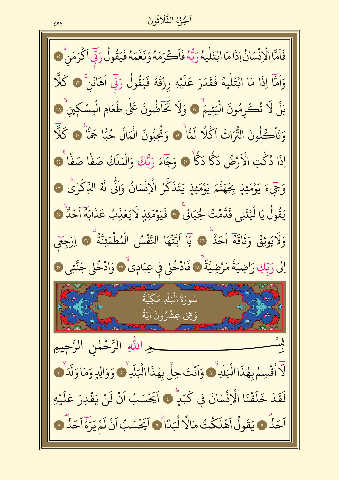 اَلْجُزْءُ الثَّلَاثُونَ
فَاَمَّا الْاِنْسَانُ اِذَا مَا ابْتَلٰيهُ رَبُّهُ فَاَكْرَمَهُ وَنَعَّمَهُ فَيَقُولُ رَبّٖٓي اَكْرَمَنِۜ
وَاَمَّٓا اِذَا مَا ابْتَلٰيهُ فَقَدَرَ عَلَيْهِ رِزْقَهُ فَيَقُولُ رَبّٖٓي اَهَانَنِۚ كَلَّا
بَلْ لَا تُكْرِمُونَ الْيَتٖيمَۙ وَلَا تَحَٓاضُّونَ عَلٰى طَعَامِ الْمِسْكٖينِۙ
وَتَأْكُلُونَ التُّرَاثَ اَكْلًا لَمًّاۙ وَتُحِبُّونَ الْمَالَ حُبًّا جَمًّاۜ كَلَّٓا
اِذَا دُكَّتِ الْاَرْضُ دَكًّا دَكًّاۙ وَجَٓاءَ رَبُّكَ وَالْمَلَكُ صَفًّا صَفًّاۚ
وَجٖٓيءَ يَوْمَئِذٍ بِجَهَنَّمَ يَوْمَئِذٍ يَتَذَكَّرُ الْاِنْسَانُ وَاَنّٰى لَهُ الذِّكْرٰىۜ
يَقُولُ يَا لَيْتَنٖي قَدَّمْتُ لِحَيَاتٖيۚ فَيَوْمَئِذٍ لَا يُعَذِّبُ عَذَابَهُٓ اَحَدٌۙ
وَلَا يُوثِقُ وَثَاقَهُٓ اَحَدٌۜ يَٓا اَيَّتُهَا النَّفْسُ الْمُطْمَئِنَّةُۗ اِرْجِعٖٓي
اِلٰى رَبِّكِ رَاضِيَةً مَرْضِيَّةًۚ فَادْخُلٖي فٖي عِبَادٖيۙ وَادْخُلٖي جَنَّتٖي
سُورَةُ الْبَلَدِ مَكِّيَّةٌ
وَهِيَ عِشْرُونَ اٰيَةً
بِسْمِ اللّٰهِ الرَّحْمٰنِ الرَّحٖيمِ
لَٓا اُقْسِمُ بِهٰذَا الْبَلَدِۙ وَاَنْتَ حِلٌّ بِهٰذَا الْبَلَدِۙ وَوَالِدٍ وَمَا وَلَدَۙ
لَقَدْ خَلَقْنَا الْاِنْسَانَ فٖي كَبَدٍۜ اَيَحْسَبُ اَنْ لَنْ يَقْدِرَ عَلَيْهِ
اَحَدٌۢ يَقُولُ اَهْلَكْتُ مَالًا لُبَدًاۜ اَيَحْسَبُ اَنْ لَمْ يَرَهُٓ اَحَدٌۜ